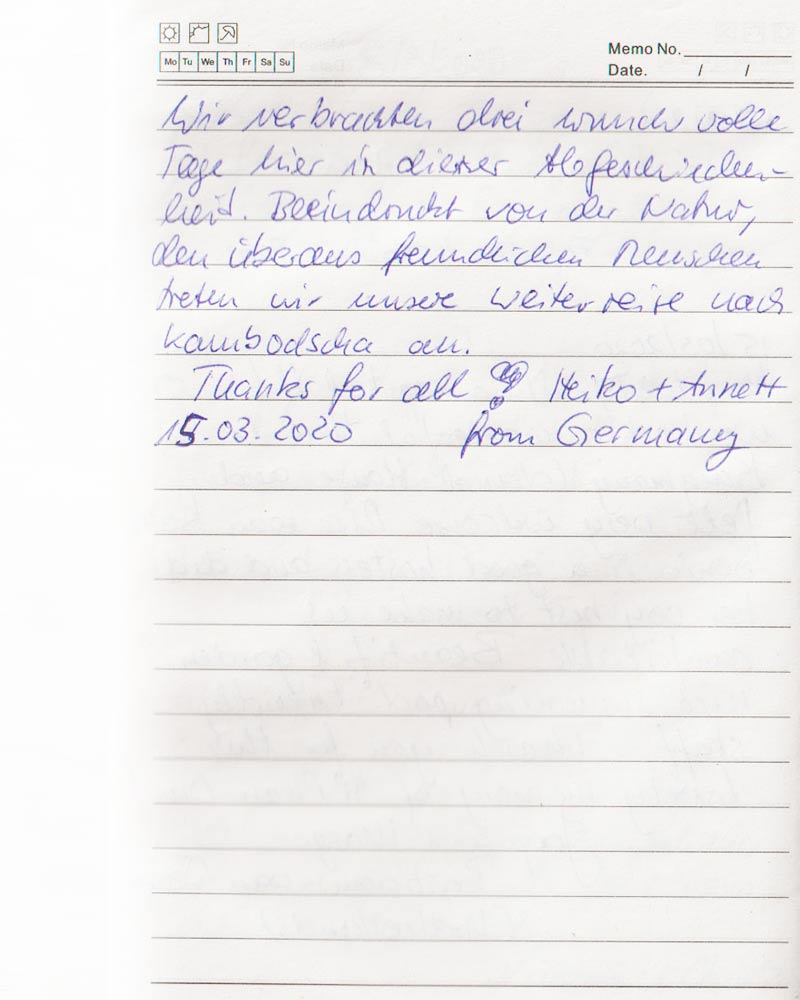 Mo Tu We Th Fr Sa Su
Memo No.
Date. / /
Wir verbrachten drei wundervolle
Tage hier in dieser Abgeschieden-
heit. Beeindruckt von der Natur,
den überaus freundlichen Menschen
treten wir unsere Weiterreise nach
Kambodscha an.
Thanks for all Heiko + Annett
15.03.2020 from Germany